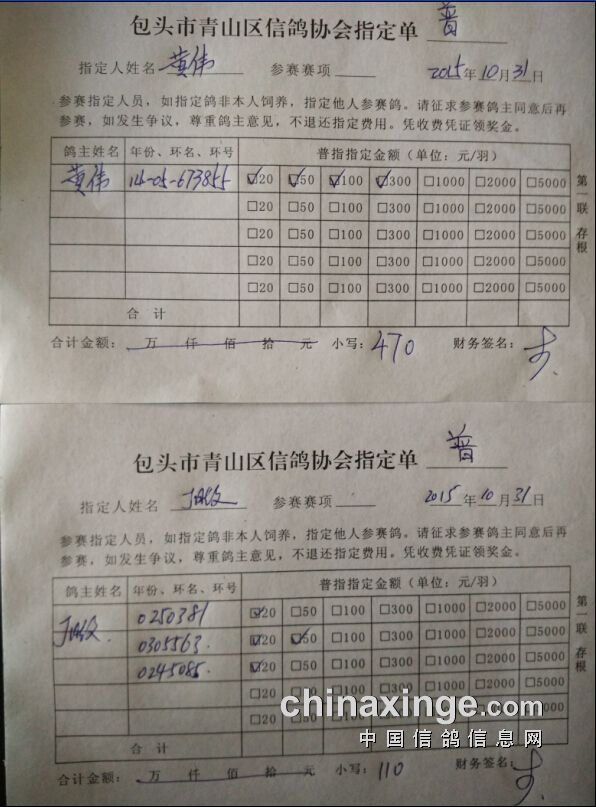 包头市青山区信鸽协会指定单 普
指定人姓名 黄伟 参赛赛项 2015年10月31日
参赛指定人员，如指定鸽非本人饲养，指定他人参赛鸽。请征求参赛鸽主同意后再
参赛，如发生争议，尊重鸽主意见，不退还指定费用。凭收费凭证领奖金。
鸽主姓名 年份、环名、环号 普指指定金额（单位：元/羽）
黄伟 14-05-673855 ☑20 ☑50 ☑100 ☑300 □1000 □2000 □5000
□20 □50 □100 □300 □1000 □2000 □5000
□20 □50 □100 □300 □1000 □2000 □5000
□20 □50 □100 □300 □1000 □2000 □5000
□20 □50 □100 □300 □1000 □2000 □5000
合 计
第一联 存根
合计金额： 万 仟 佰 拾 元 小写：470 财务签名：
包头市青山区信鸽协会指定单 普
指定人姓名 参赛赛项 2015年10月31日
参赛指定人员，如指定鸽非本人饲养，指定他人参赛鸽。请征求参赛鸽主同意后再
参赛，如发生争议，尊重鸽主意见，不退还指定费用。凭收费凭证领奖金。
鸽主姓名 年份、环名、环号 普指指定金额（单位：元/羽）
0250381 ☑20 □50 □100 □300 □1000 □2000 □5000
0305563. ☑20 ☑50 □100 □300 □1000 □2000 □5000
0245085. ☑20 □50 □100 □300 □1000 □2000 □5000
□20 □50 □100 □300 □1000 □2000 □5000
□20 □50 □100 □300 □1000 □2000 □5000
合 计
第一联 存根
合计金额： 万 仟 佰 拾 元 小写：110 财务签名：
chinaxinge.com
中国信鸽信息网